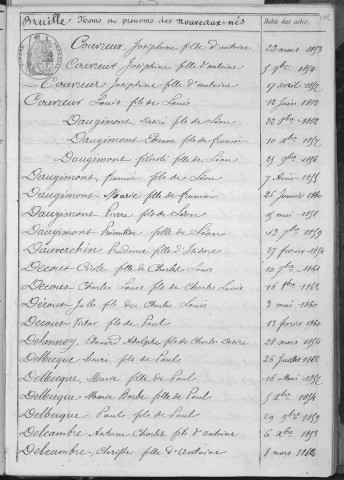 Bruille Noms et prénoms des nouveaux-nés Dates des actes.
Couvreur Joséphine fille d'antoine 22 mars 1853
Couvreur Joséphine fille d'antoine 5 9bre 1854
Couvreur Joséphine fille d'antoine 17 avril 1857
Couvreur Louis fils de Louis 12 Juin 1862
Daugimont Désiré fils de Léon 22 8bre 1862
Daugimont Etienne fils de 10 Xbre 1857
Daugimont fils de Léon 25 9bre 1856
Daugimont fils de Léon 7 1855
Daugimont Marie fille de 26 Janvier 1860
Daugimont Pierre fils de Léon 15 mai 1858
Daugimont fils de Léon 13 9bre 1859
Dauverchin Prudence fille d'Isidore 27 février 1854
Decout fille de Charles Louis 10 1860
Decout Charles Louis fils de Charles Louis 16 1857
Décout Jules fils de Charles Louis 9 mai 1860
Decout Victor fils de Paul 13 février 1860
Delannoy Edouard Adolphe fils de Charles Désiré 28 mars 1854
Delbecque fils de Paul 26 Juillet 1862
Delbecque Marie fille de Paul 16 Mars 1857
Delbecque Marie Barbe fille de Paul 5 1854
Delbecque Paul fils de Paul 29 9bre 1859
Delcambre Antoine Charles fils d'antoine 6 Xbre 1853
Delcambre fille d'Antoine 8 mars 1862